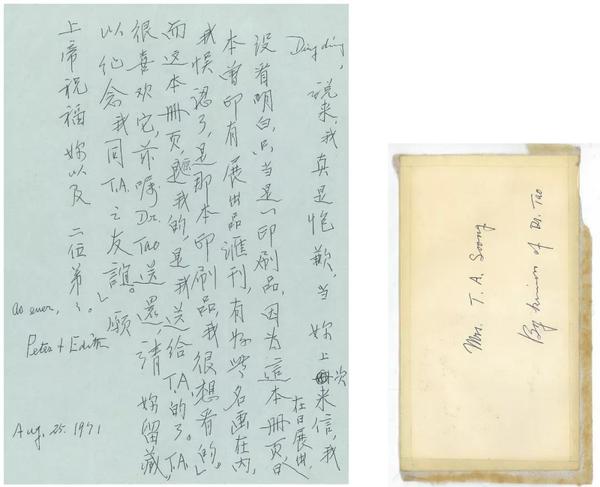 Ding ding,
说来,我真是抱歉,当妳上次来信,我
没有明白,只当是一印刷品,因为這本册页,日
在日展出,
本曾印有展出品滙刊,有好些名画在内,
我悮认了,是那本印刷品,我很想看的。
而这本册页,是我的,是我送给T.A.的了。T.A.
很喜欢它,兹嘱Dr. Tao送還,请妳留藏,
以纪念我同T.A.之友誼。」願
上帝祝福妳以及二位弟弟。
as ever,
Peter + Edith
Aug. 25. 1971
Mrs. T. A. Soong
By kindness of Dr. Tao